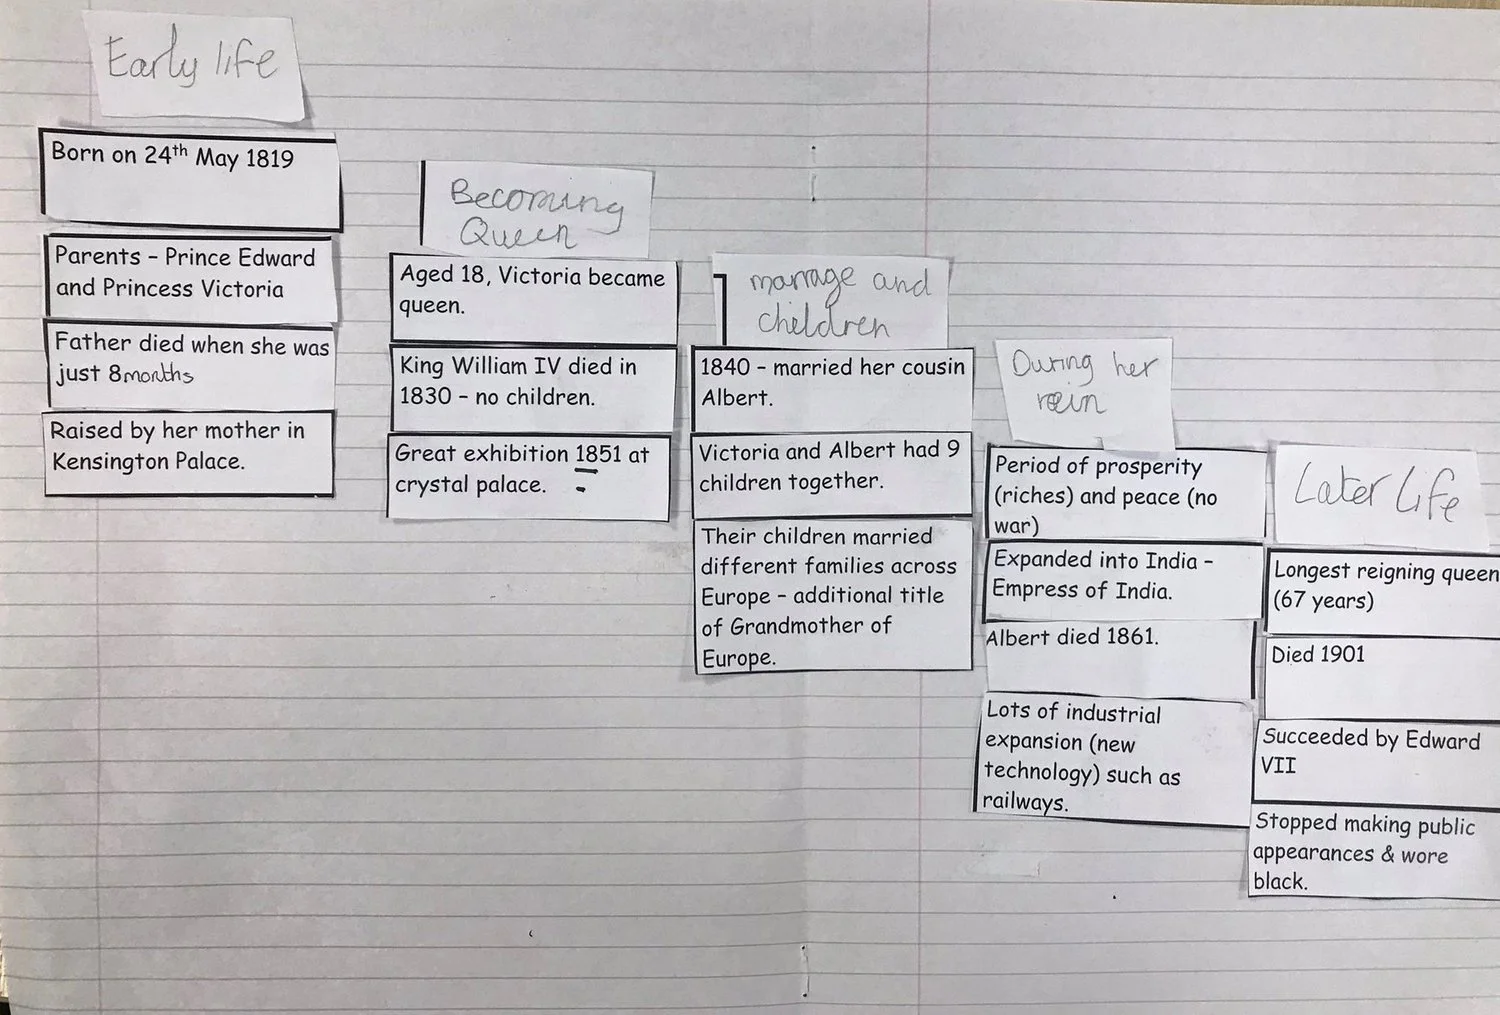 Early life
Born on 24th May 1819
Parents – Prince Edward
and Princess Victoria
Father died when she was
just 8months
Raised by her mother in
Kensington Palace.
Becoming
Queen
Aged 18, Victoria became
queen.
King William IV died in
1830 – no children.
Great exhibition 1851 at
crystal palace.
marrage and
children
1840 – married her cousin
Albert.
Victoria and Albert had 9
children together.
Their children married
different families across
Europe – additional title
of Grandmother of
Europe.
During her
rein
Period of prosperity
(riches) and peace (no
war)
Expanded into India –
Empress of India.
Albert died 1861.
Lots of industrial
expansion (new
technology) such as
railways.
Later life
Longest reigning queen
(67 years)
Died 1901
Succeeded by Edward
VII
Stopped making public
appearances & wore
black.